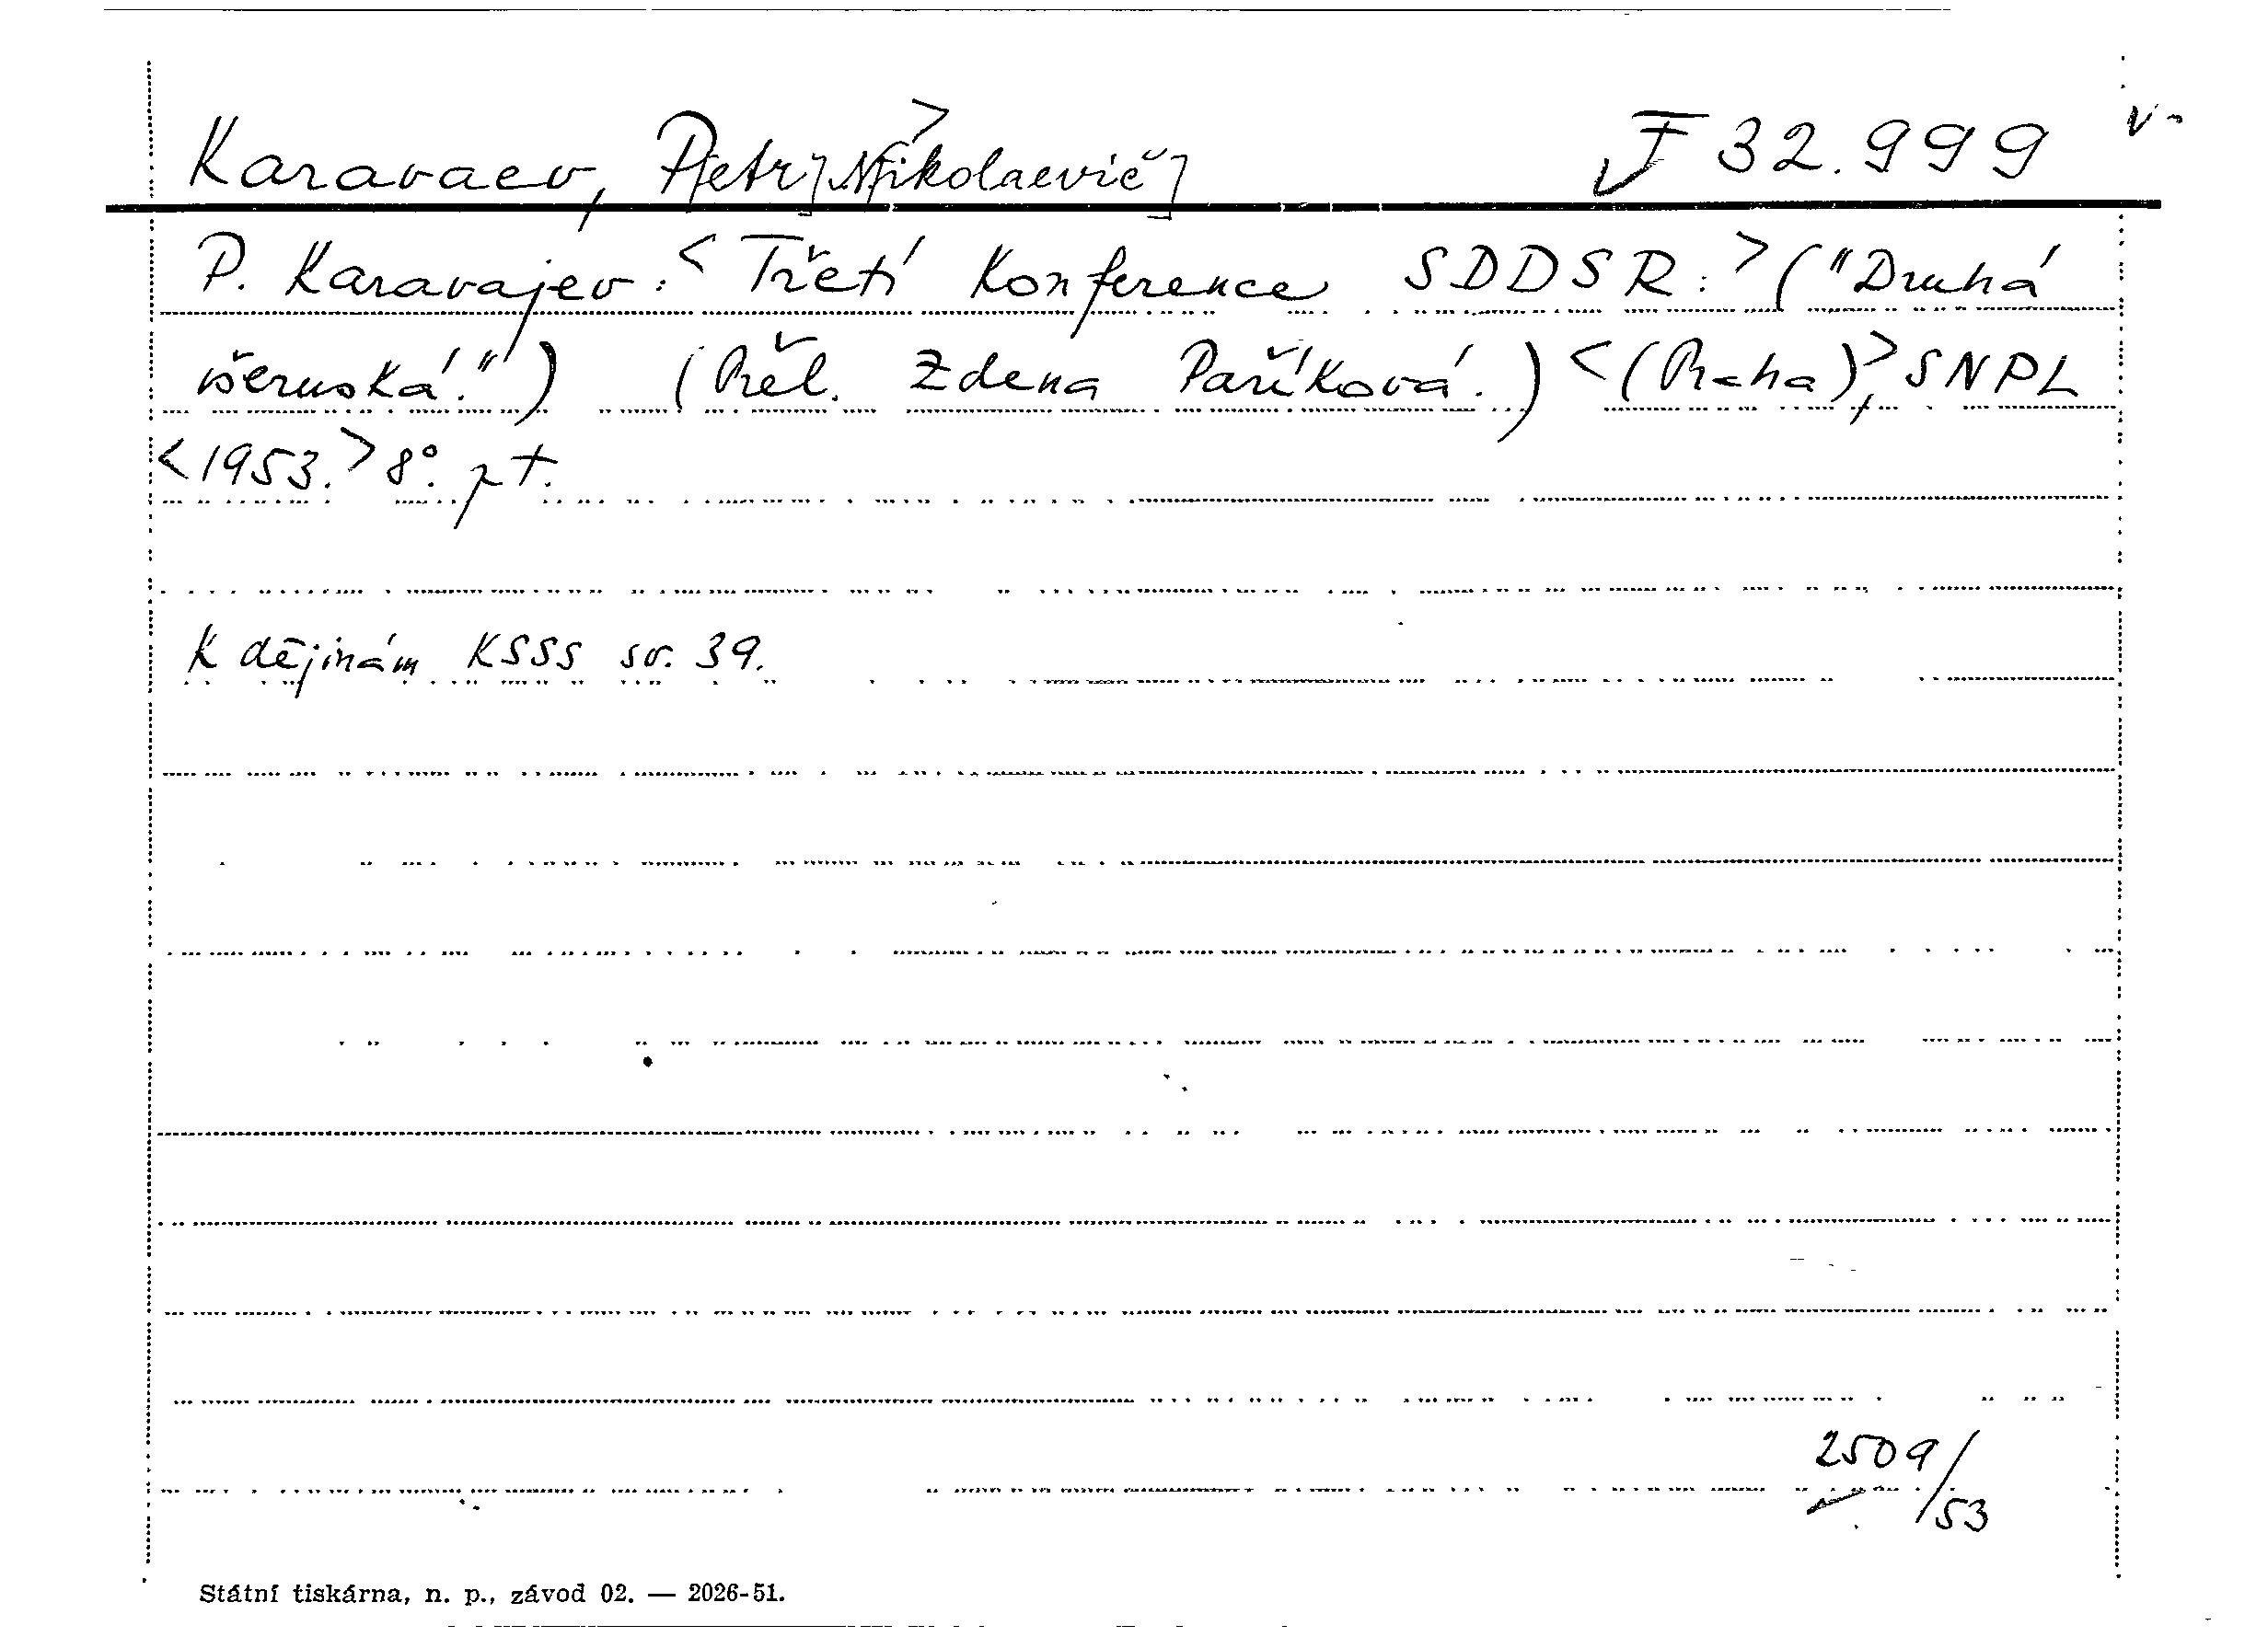 Karavaev, P[etr] N[ikolaevič] F 32.999
P. Karavajev: <Třetí Konference SDDSR.> ("Druhá
všeruská.") (Přel. Zdena Paříková.) <(Praha),> SNPL
<1953.> 8°.
K dějinám KSSS sv. 39.
2509/53
Státní tiskárna, n. p., závod 02. — 2026-51.